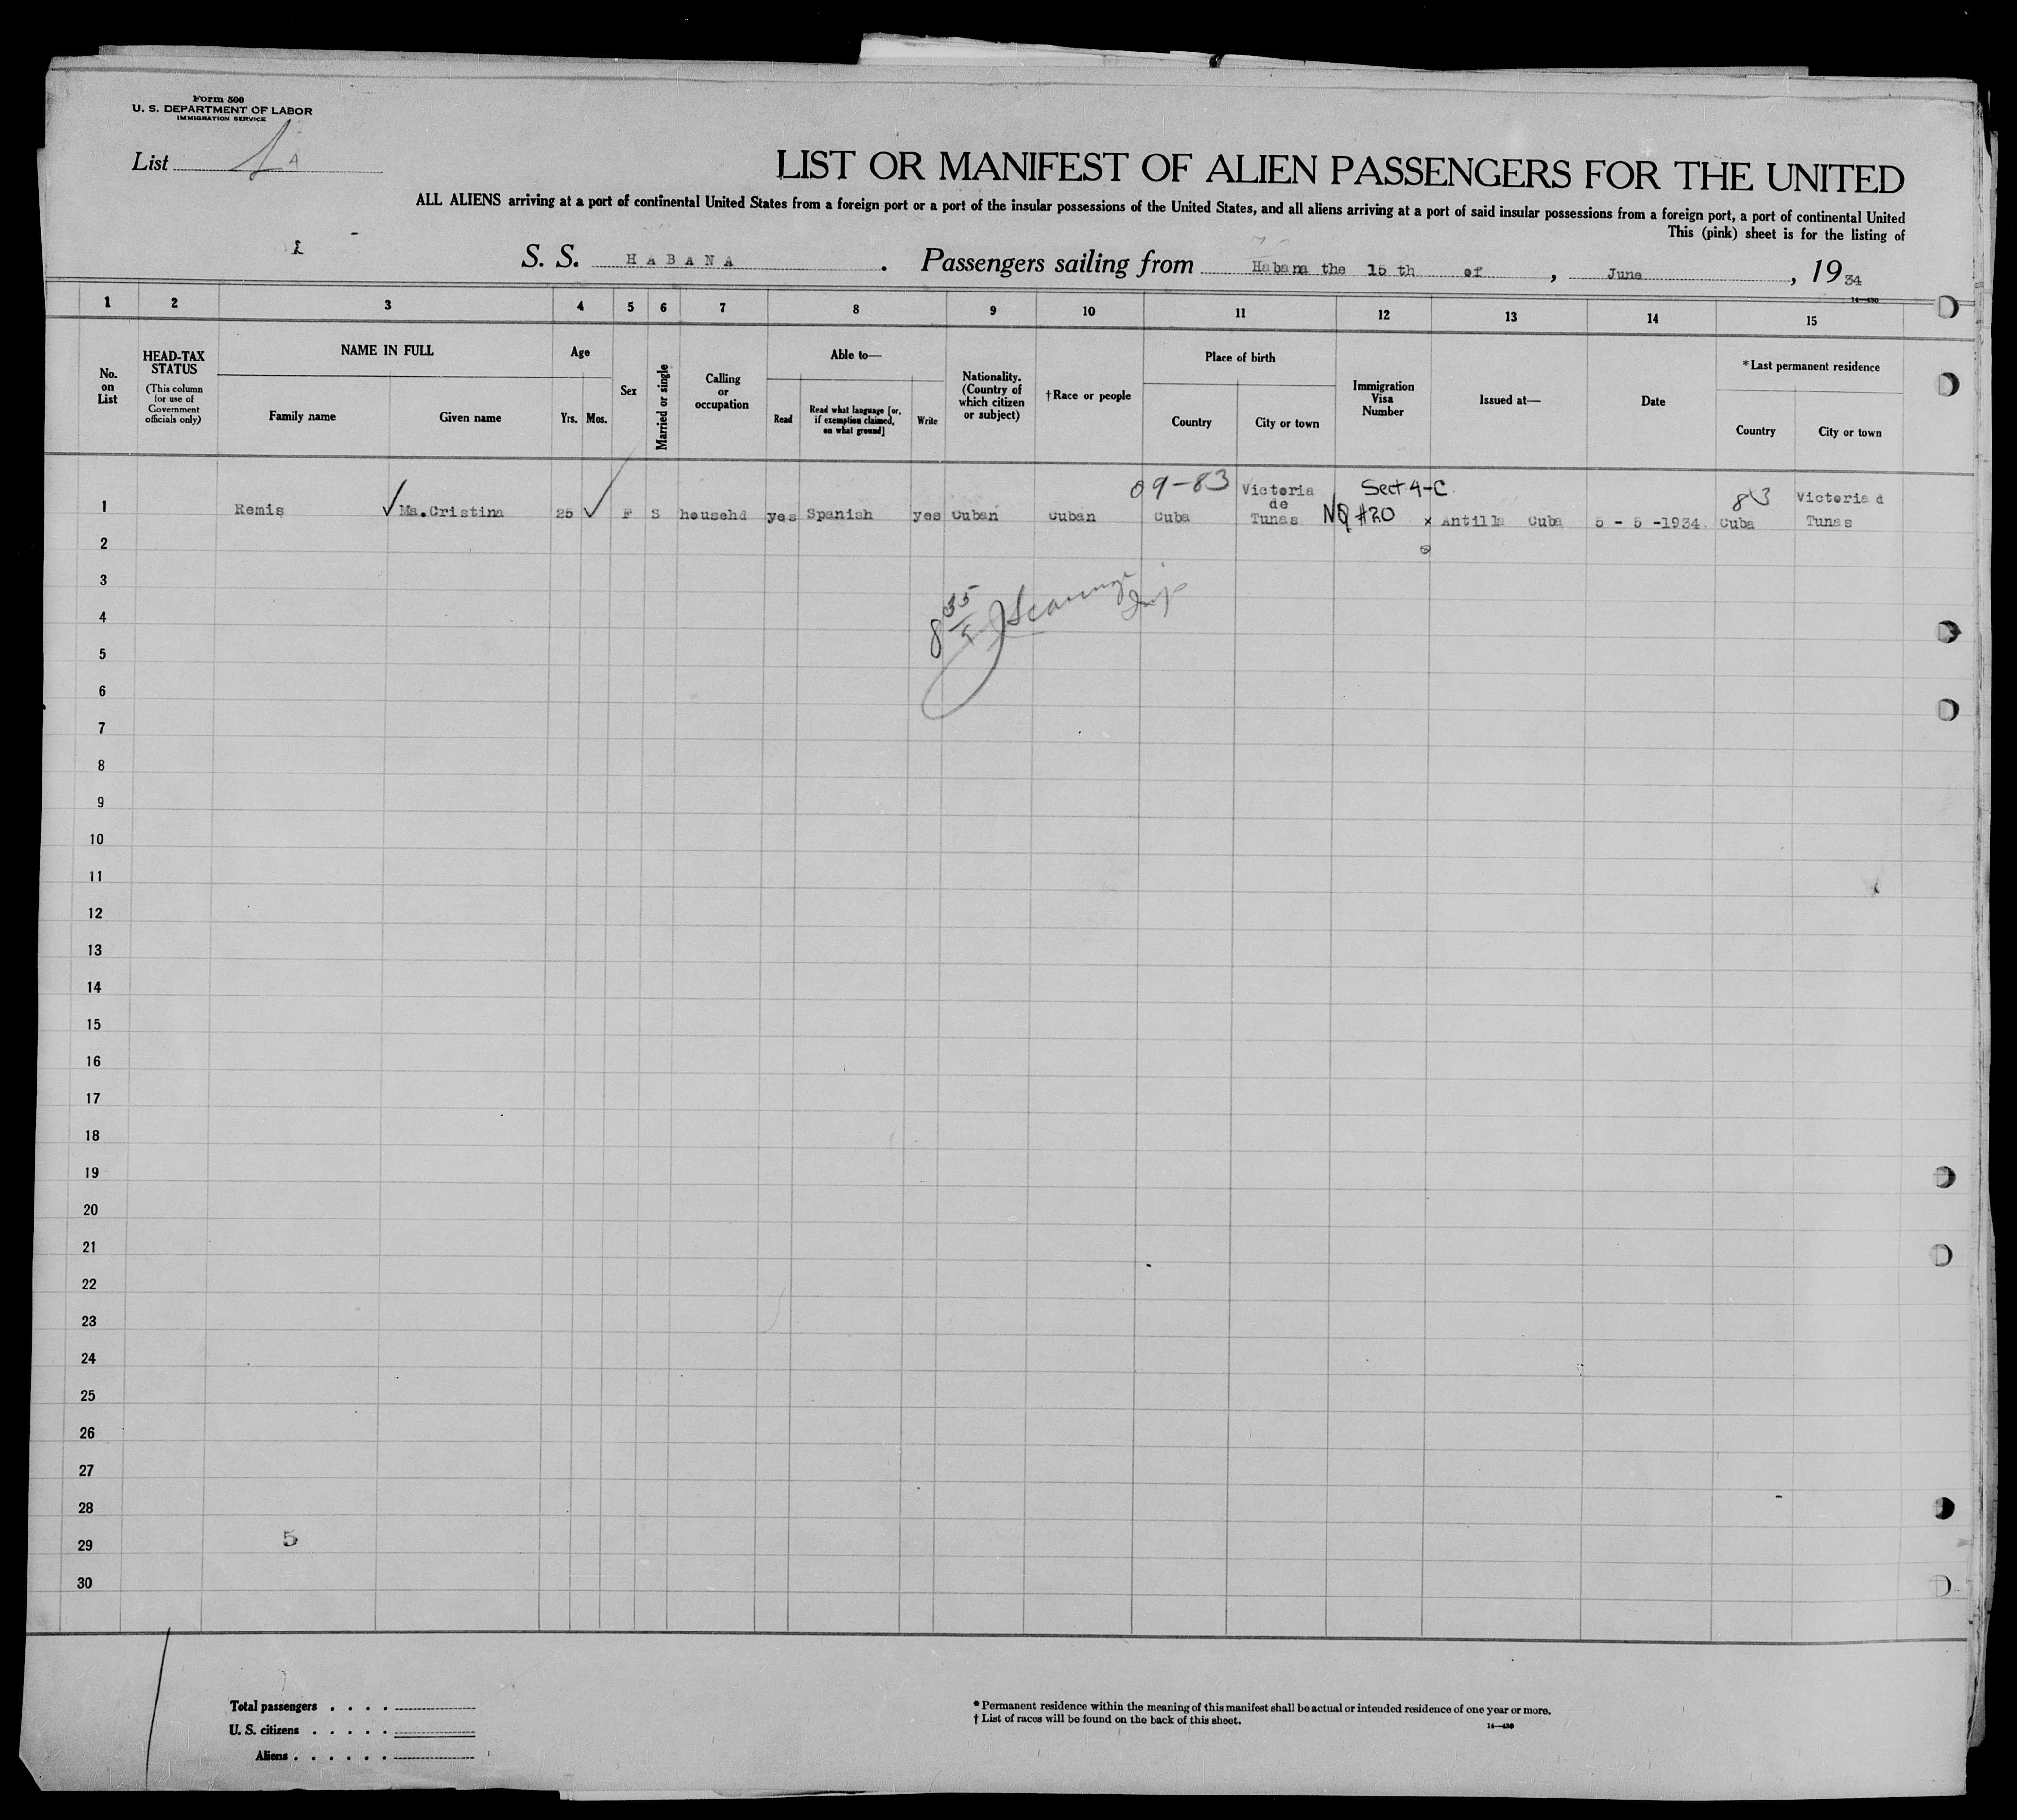 Form 500
U. S. DEPARTMENT OF LABOR
IMMIGRATION SERVICE
List
LIST OR MANIFEST OF ALIEN PASSENGERS FOR THE UNITED
ALL ALIENS arriving at a port of continental United States from a foreign port or a port of the insular possessions of the United States, and all aliens arriving at a port of said insular possessions from a foreign port, a port of continental United
This (pink) sheet is for the listing of
S. S. HABANA. Passengers sailing from Habana the 15 th of, June, 1934
14—430
1 2 3 4 5 6 7 8 9 10 11 12 13 14 15
No. on List
HEAD-TAX STATUS
(This column for use of Government officials only)
NAME IN FULL
Family name
Given name
Age
Yrs. Mos.
Sex
Married or single
Calling or occupation
Able to—
Read
Read what language [or, if exemption claimed, on what ground]
Write
Nationality. (Country of which citizen or subject)
†Race or people
Place of birth
Country
City or town
Immigration Visa Number
Issued at—
Date
*Last permanent residence
Country
City or town
09-83 Sect 4-C 83
1 Remis Ma.Cristina 25 F S househd yes Spanish yes Cuban Cuban Cuba Victoria de Tunas NQ #20 x Antilla Cuba 5 - 5 -1934. Cuba Victoria d Tunas
2
3
4
5
6
7
8
9
10
11
12
13
14
15
16
17
18
19
20
21
22
23
24
25
26
27
28
29 5
30
Total passengers . . . .
U. S. citizens . . . . .
Aliens . . . . . .
* Permanent residence within the meaning of this manifest shall be actual or intended residence of one year or more.
† List of races will be found on the back of this sheet.
14—430